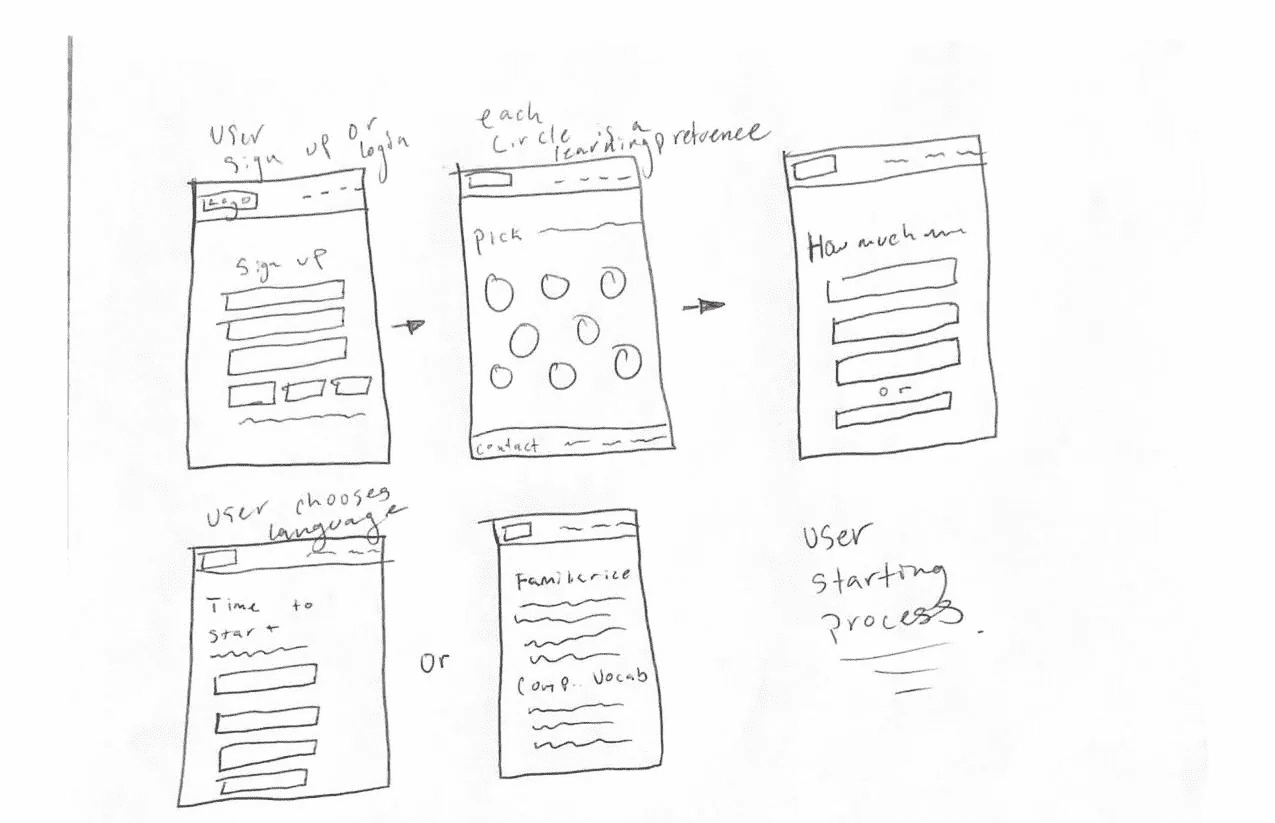 user
sign up or
login
Logo
Sign up
each
circle is a
learning preternece
pick
contact
How much
or
user chooses
language
Time to
start
or
Familierize
Comp.. Vocab
user
starting
process.